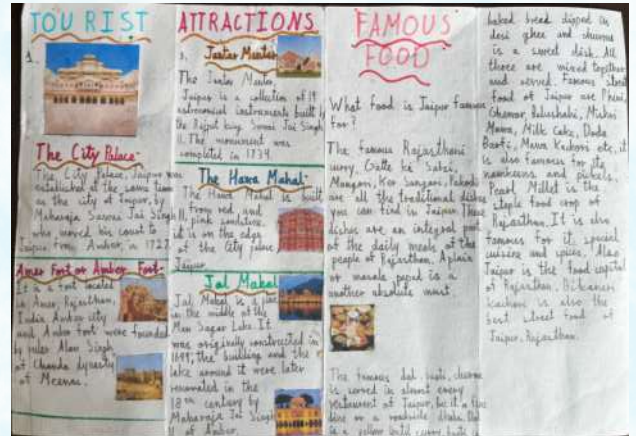 TOURIST
1.
The City Palace:
The City Palace, Jaipur was
established at the same time
as the city of Jaipur, by
Maharaja Sawai Jai Singh II,
who moved his court to
Jaipur from Amber, in 1727.
Amer Fort or Amber Fort:
It is a fort located
in Amer, Rajasthan,
India. Amber city
and Amber fort were founded
by ruler Alan Singh
of Chanda dynasty
of Meenas.
ATTRACTIONS
Jantar Mantar
The Jantar Mantar,
Jaipur is a collection of 19
astronomical instruments built by
the Rajput king Sawai Jai Singh
II. The monument was
completed in 1734.
The Hawa Mahal:
The Hawa Mahal is built
from red and
pink sandstone,
it is on the edge
of the City palace
Jaipur
Jal Mahal
Jal Mahal is a place
in the middle of the
Man Sagar Lake. It
was originally constructed in
1699; the building and the
lake around it were later
renovated in the
18th century by
Maharaja Jai Singh
II of Amber.
FAMOUS
FOOD
What food is Jaipur famous
for?
The famous Rajasthani
curry, Gatte ki Sabzi,
Mangori, Ker Sangari, Pakodi
are all the traditional dishes
you can find in Jaipur. These
dishes are an integral part
of the daily meals of the
people of Rajasthan. A plain
or masala papad is a
another absolute must
The famous dal, baati, churma
is served in almost every
restaurant of Jaipur, be it a fine
dine or a roadside dhaba. Dal
is a yellow lentil curry, baati is
baked bread dipped in
desi ghee and churma
is a sweet dish. All
three are mixed together
and served. Famous street
food of Jaipur are Pheni,
Ghewar, Balushahi, Mishri
Mawa, Milk Cake, Doda
Barfi, Mawa Kachori etc, it
is also famous for its
namkeens and pickels.
Pearl Millet is the
staple food crop of
Rajasthan. It is also
famous for its special
cuisine and spices. Also
Jaipur is the food capital
of Rajasthan. Bikaneri
kachori is also the
best street food of
Jaipur, Rajasthan.